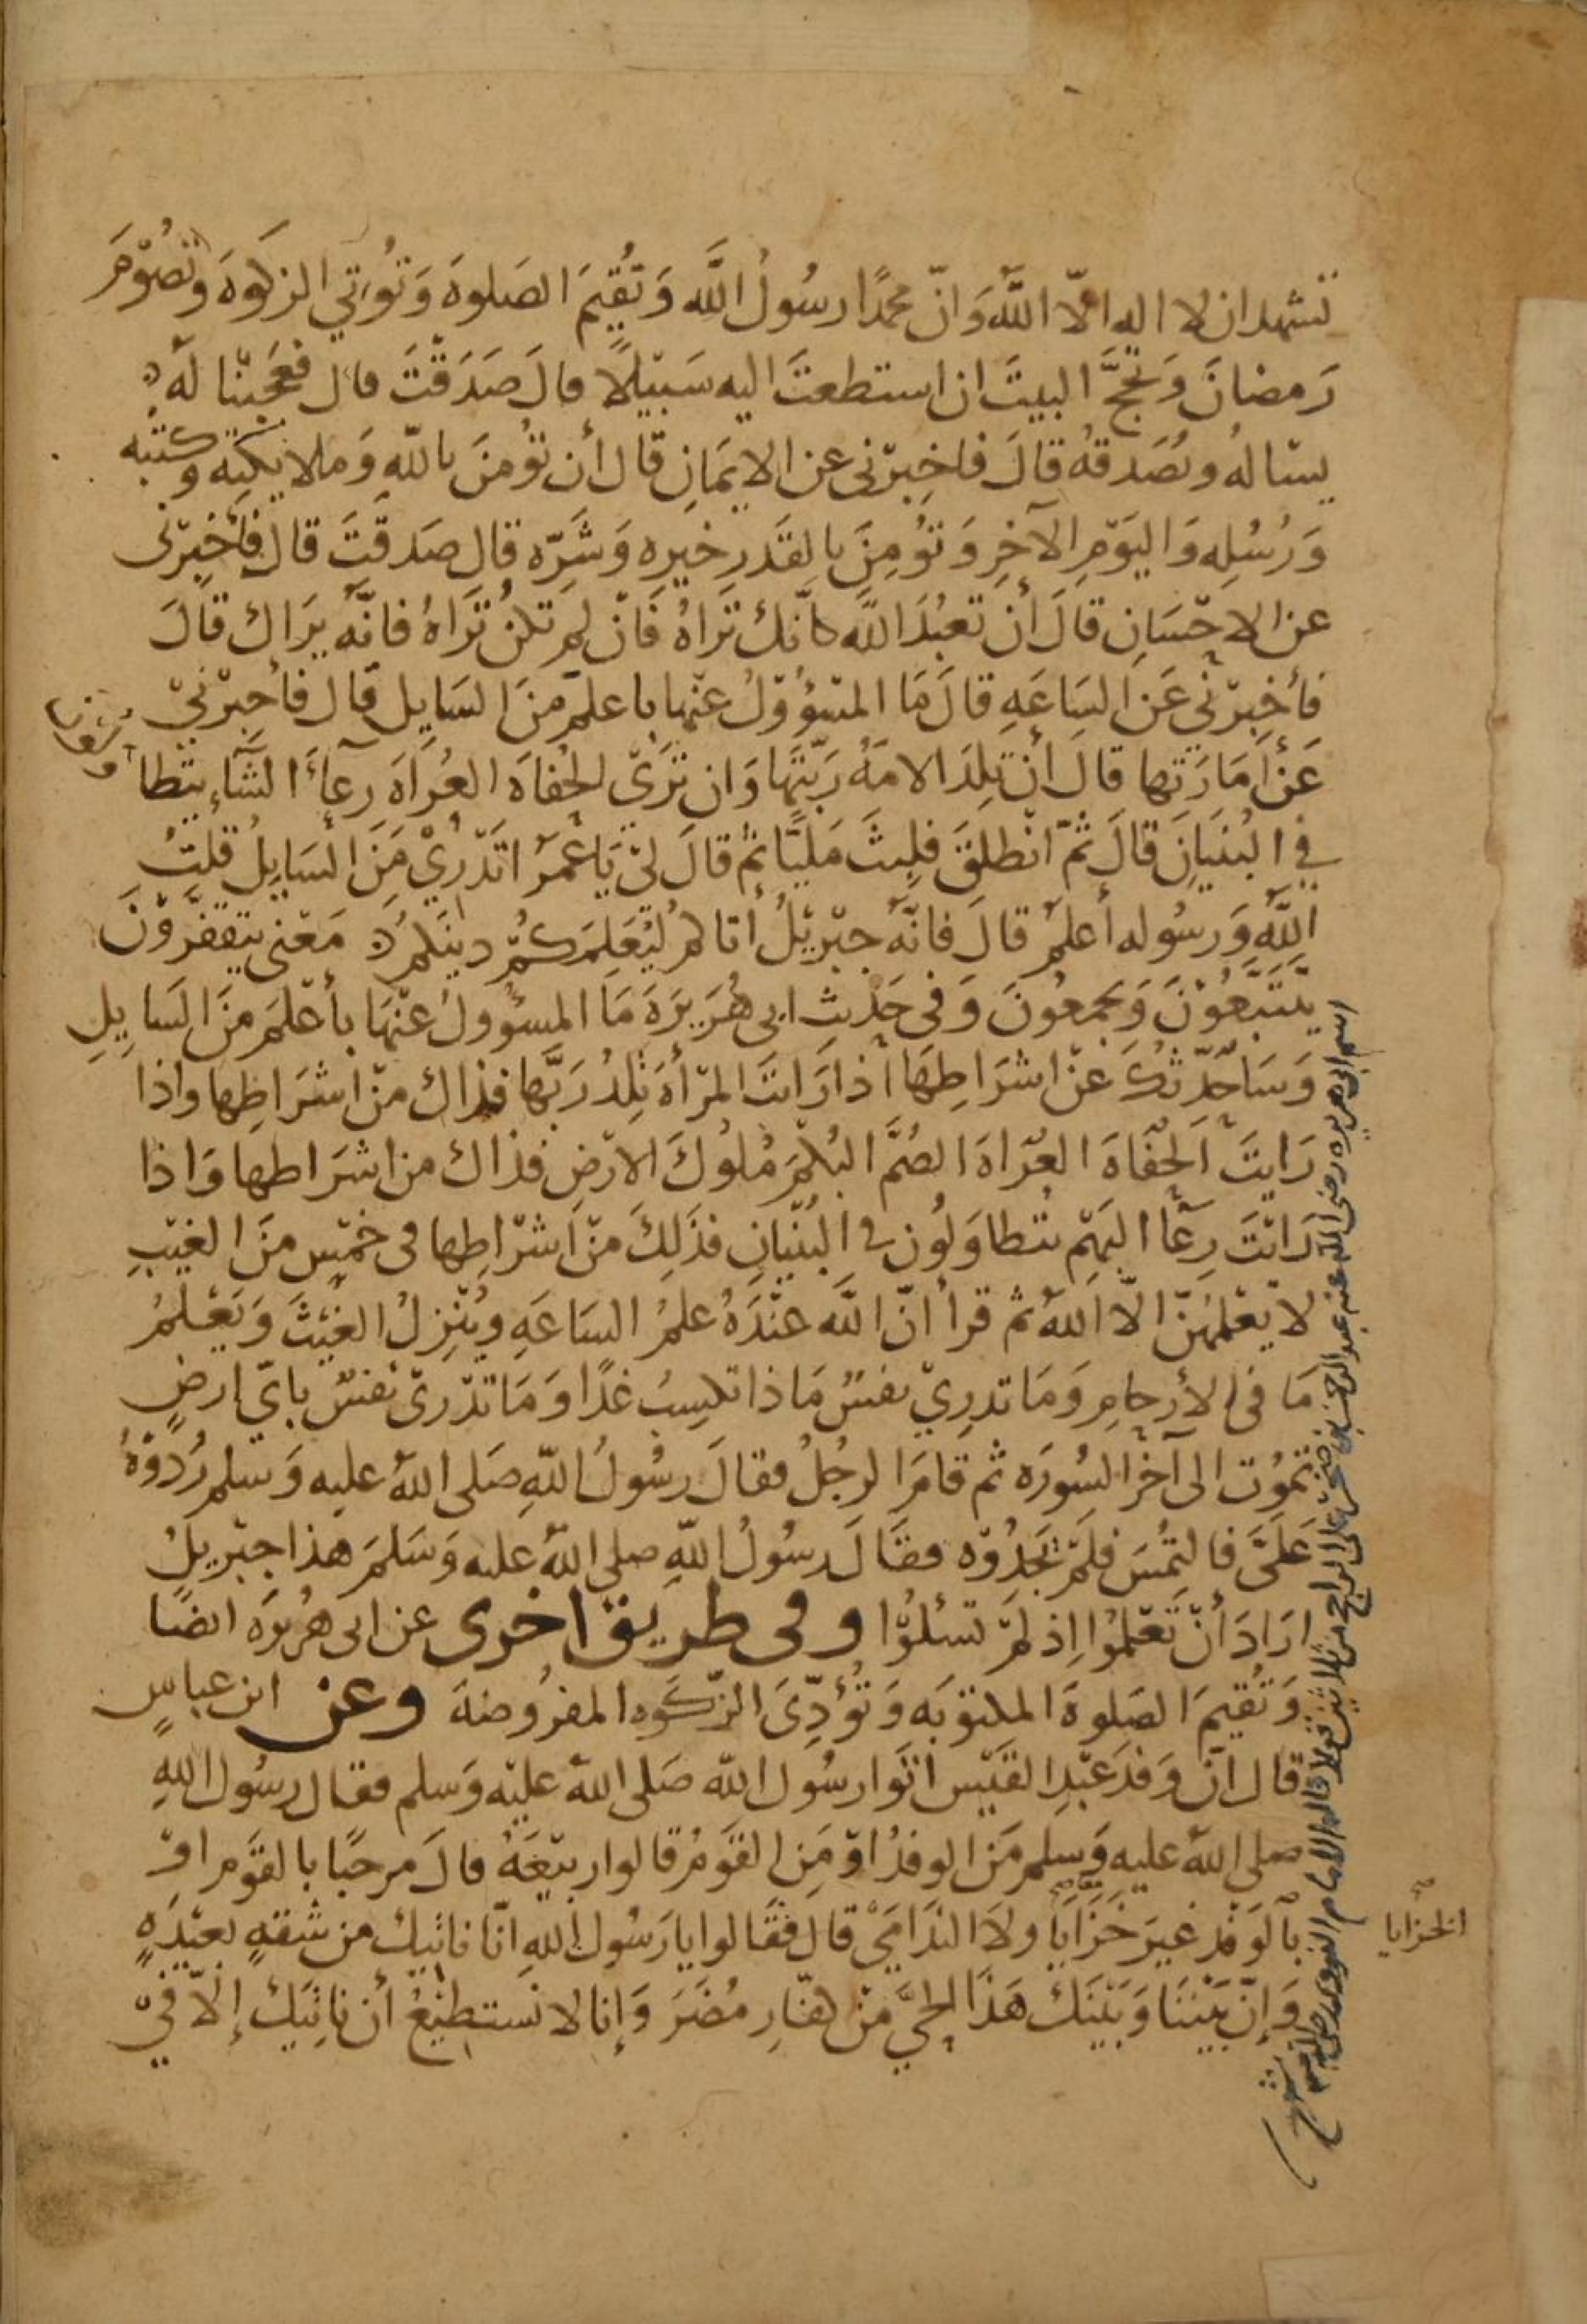 تشهد ان لا اله الّا اللَّه وَانّ محمدًا رسُولُ اللَّه وَتُقِيمَ الصَلوهَ وَتُؤتي الزكوهَ وتصُوْمَ
رَمضانَ وَتحجَّ البيتَ ان استطعتَ اليه سَبيْلًا قالَ صَدَقْتَ قال فعَجِبْنا لَهُ
يسْالهُ ويُصَدقهُ قالَ فاخبِرْنى عن الايمَانِ قال أن تؤمنَ باللّهِ وَملايكتِه وكتبه
وَرُسُلِه وَاليَوْمِ الآخِرِ وَتؤُمِنَ بالقَدَرِ خيرِه وَشَرِّه قال صَدقْتَ قال فأخْبِرْنى
عن الاحْسَانِ قَالَ أن تعبُدَ اللَّه كانّك تَرَاهُ فَانْ لم تكنْ تَرَاهُ فانَّه يَرَاك قالَ
فأخبِرْني عَن السَاعَهِ قالَ مَا المسْؤُوْلُ عنْها باعلمَ منَ السَايِل قال فأخبِرْنيْ
عَنْ أمَارَتها قال أن تلِدَ الامَهُ رَبَّتهَا وَان تَرَىْ الحُفاهَ العُرَاهَ رِعآءَ الشَّآءِ يتطا
ولون
في البُنيَانِ قالَ ثمّ انطلقَ فلبِثَ مَليًّا ثم قالَ لىْ يَا عُمَرُ اتَدْرِيْ مَنَ السَايِلُ قلتُ
اللَّهُ وَرسُوله أعلمُ قالَ فانَّه جبْريْلُ أتاكمُ ليُعَلِمَكُمْ دينكمُ مَعْنى يتقفَّرُوْنَ
يتَتَبَّعُوْنَ وَيجْمعُونَ وَفى حَدْيثِ ابى هُرَيرَهَ مَا المسؤُولُ عنْهَا بأعْلمَ منَ السَايِلِ
وَسَاحَدِّثُكَ عنْ اشرَاطِهَا اذا رَايتَ المرْأهَ تلِدُ رَبَّها فذاك منْ اشرَاطِها واذا
رَايتَ الحُفاهَ العُرَاهَ الصُمَّ البُكْمَ مُلوُكَ الارْضِ فذاك من اشرَاطها وَاذا
رَايْتَ رِعَآ البَهْمِ يتطاوَلُون في البُنْيانِ فذَلِكَ منْ اشْرَاطِها فى خمْسٍ منَ الغيْبِ
لا يعْلمُهنَّ الّا اللهُ ثم قرأ انّ اللَّه عنْدَهُ علمُ السَاعَهِ ويُنْزِلُ الغَيْثَ وَيَعْلمُ
مَا فى الأرحامِ وَمَا تدرِيْ نفسٌ مَاذا تكسِبُ غدًا وَمَا تدْرىْ نفسٌ بايّ ارضٍ
تموُت الى آخرِ السُورَه ثم قامَ الرجُلُ فقالَ رسُولُ اللّهِ صَلى اللهُ عليه وَسَلم رُدوْهُ
عَلىَّ فالتمُسَ فلَمْ تجَدُوْه فقَالَ رسُولُ اللّهِ صلى اللهُ عليه وَسَلمَ هذا جبْريلُ
ارَادَ أنْ تَعْلمُوا اِذ لمْ تسئلُوْا وفى طريق اخرى عن ابى هُريرَه ايضًا
وَتُقيمَ الصَلوهَ المكتوبَه وَتُؤدّىَ الزكوه المفرُوضهَ وعن ابن عباسٍ
قال انّ وَفدَ عَبْدِ القَيْسِ اتَوا رسُول اللّه صَلى اللهُ عليْه وَسلم فقال رسُول اللهِ
صلى اللهُ عليه وَسلم مَن الوفدُ اوْ مَنِ القوْمُ قالوا ربيْعَهُ قالَ مرحَبًا بالقوَم اوْ
بالوَفْدِ غيرَ خَزَايَا ولَا الندَامَىْ قال فقَالوا يا رَسُول اللهِ انّا ناتيك من شقهٍ بعيْدَهٍ
وَإنّ بَيْننَا وَبَيْنَك هَذا الحيَّ منْ كفّارِ مُضَرَ وَإنا لا نَستطيْعُ أن ناتِيَك إلاّ فيْ
الخزايا
اسم ابى هريره رضى الله عنه عبد الرحمن بن صخر على الراجح من ثلاثين قولا قاله الامام النووى رضى الله عنه